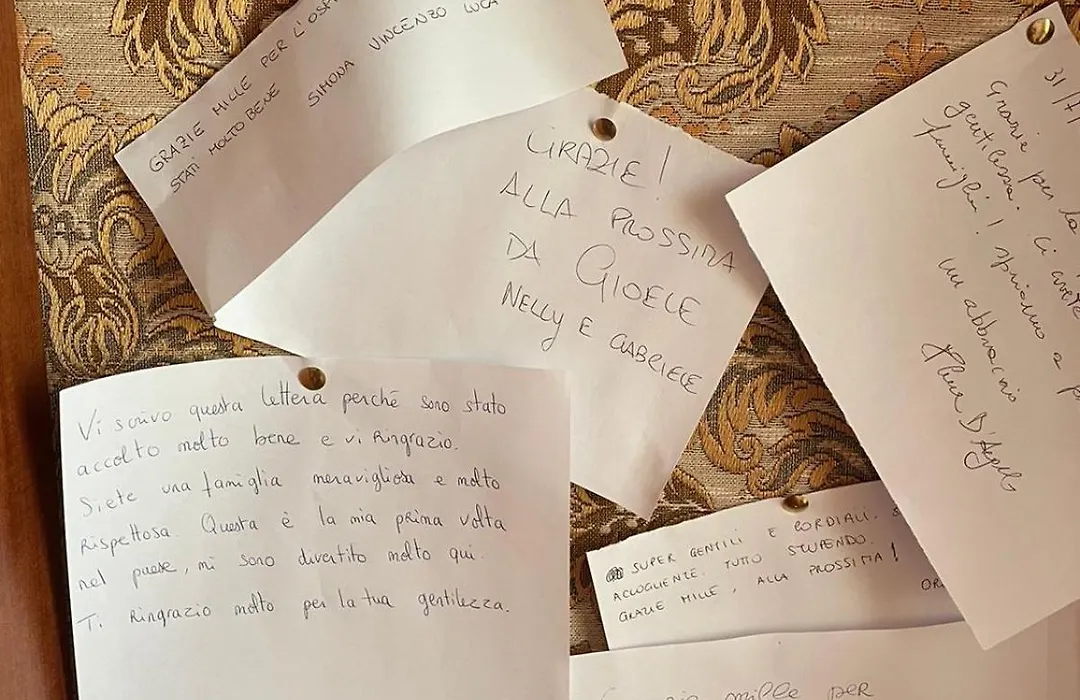 GRAZIE MILLE PER L'OSPI
STATI MOLTO BENE
SIMONA VINCENZO LUCA
GRAZIE!
ALLA PROSSIMA
DA GIOELE
NELLY E GABRIELE
31/
Grazie per la
gentilezza. Ci avete
famiglia! speriamo a p
un abbraccio
Vi scrivo questa lettera perché sono stato
accolto molto bene e vi Ringrazio.
Siete una famiglia meravigliosa e molto
Rispettosa. Questa è la mia prima volta
nel paese, mi sono divertito molto qui.
Ti Ringrazio molto per la tua gentilezza.
SUPER GENTILI E CORDIALI.
ACCOGLIENTE. TUTTO STUPENDO.
GRAZIE MILLE, ALLA PROSSIMA!
mille per